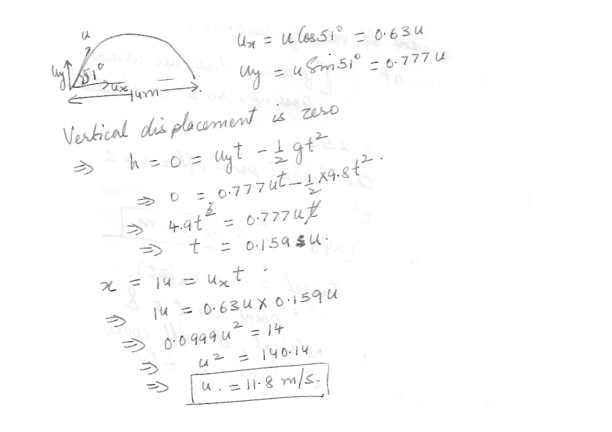 u
uy
51°
ux
14m
ux = u Cos51° = 0.63u
uy = u Sin51° = 0.777u
Vertical displacement is zero
⇒ h = 0 = uyt - 1/2 gt²
⇒ 0 = 0.777ut - 1/2 x9.8t².
⇒ 4.9t² = 0.777ut
⇒ t = 0.159u.
x = 14 = uxt
⇒ 14 = 0.63u x 0.159u
⇒ 0.0999u² = 14
⇒ u² = 140.14.
⇒ u. = 11.8 m/s.